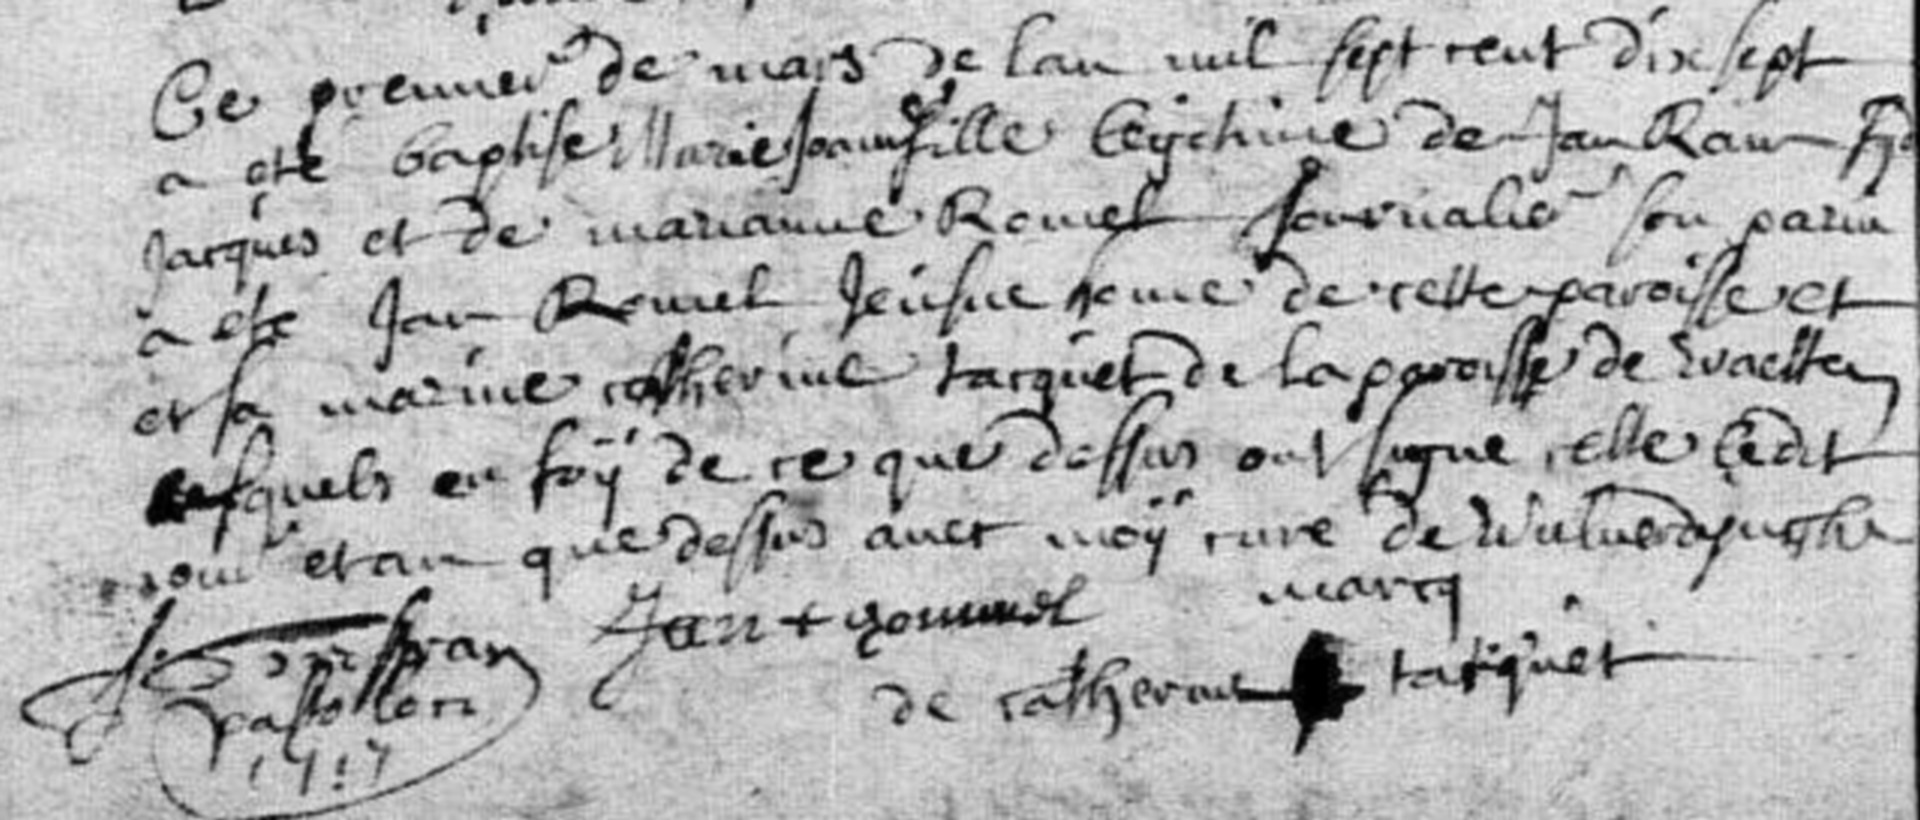 Ce premier de mars de lan mil sept cent dix sept
a eté baptise Marie Joanne fille legitime de Jan Ram fijs
Jacques et de marianne Romel Journalié son parin
a ete Jan Romel Jeusne home de cette paroisse et
et sa marine catherine tacquet de la paroisse de Watten
lesquels en foÿ de ce que dessus ont signe celle ledit
jour et an que dessus avec moÿ cure de Wulverdinghe
Jan + rommel marcq
de catherine tacquet
pastor loci
1717